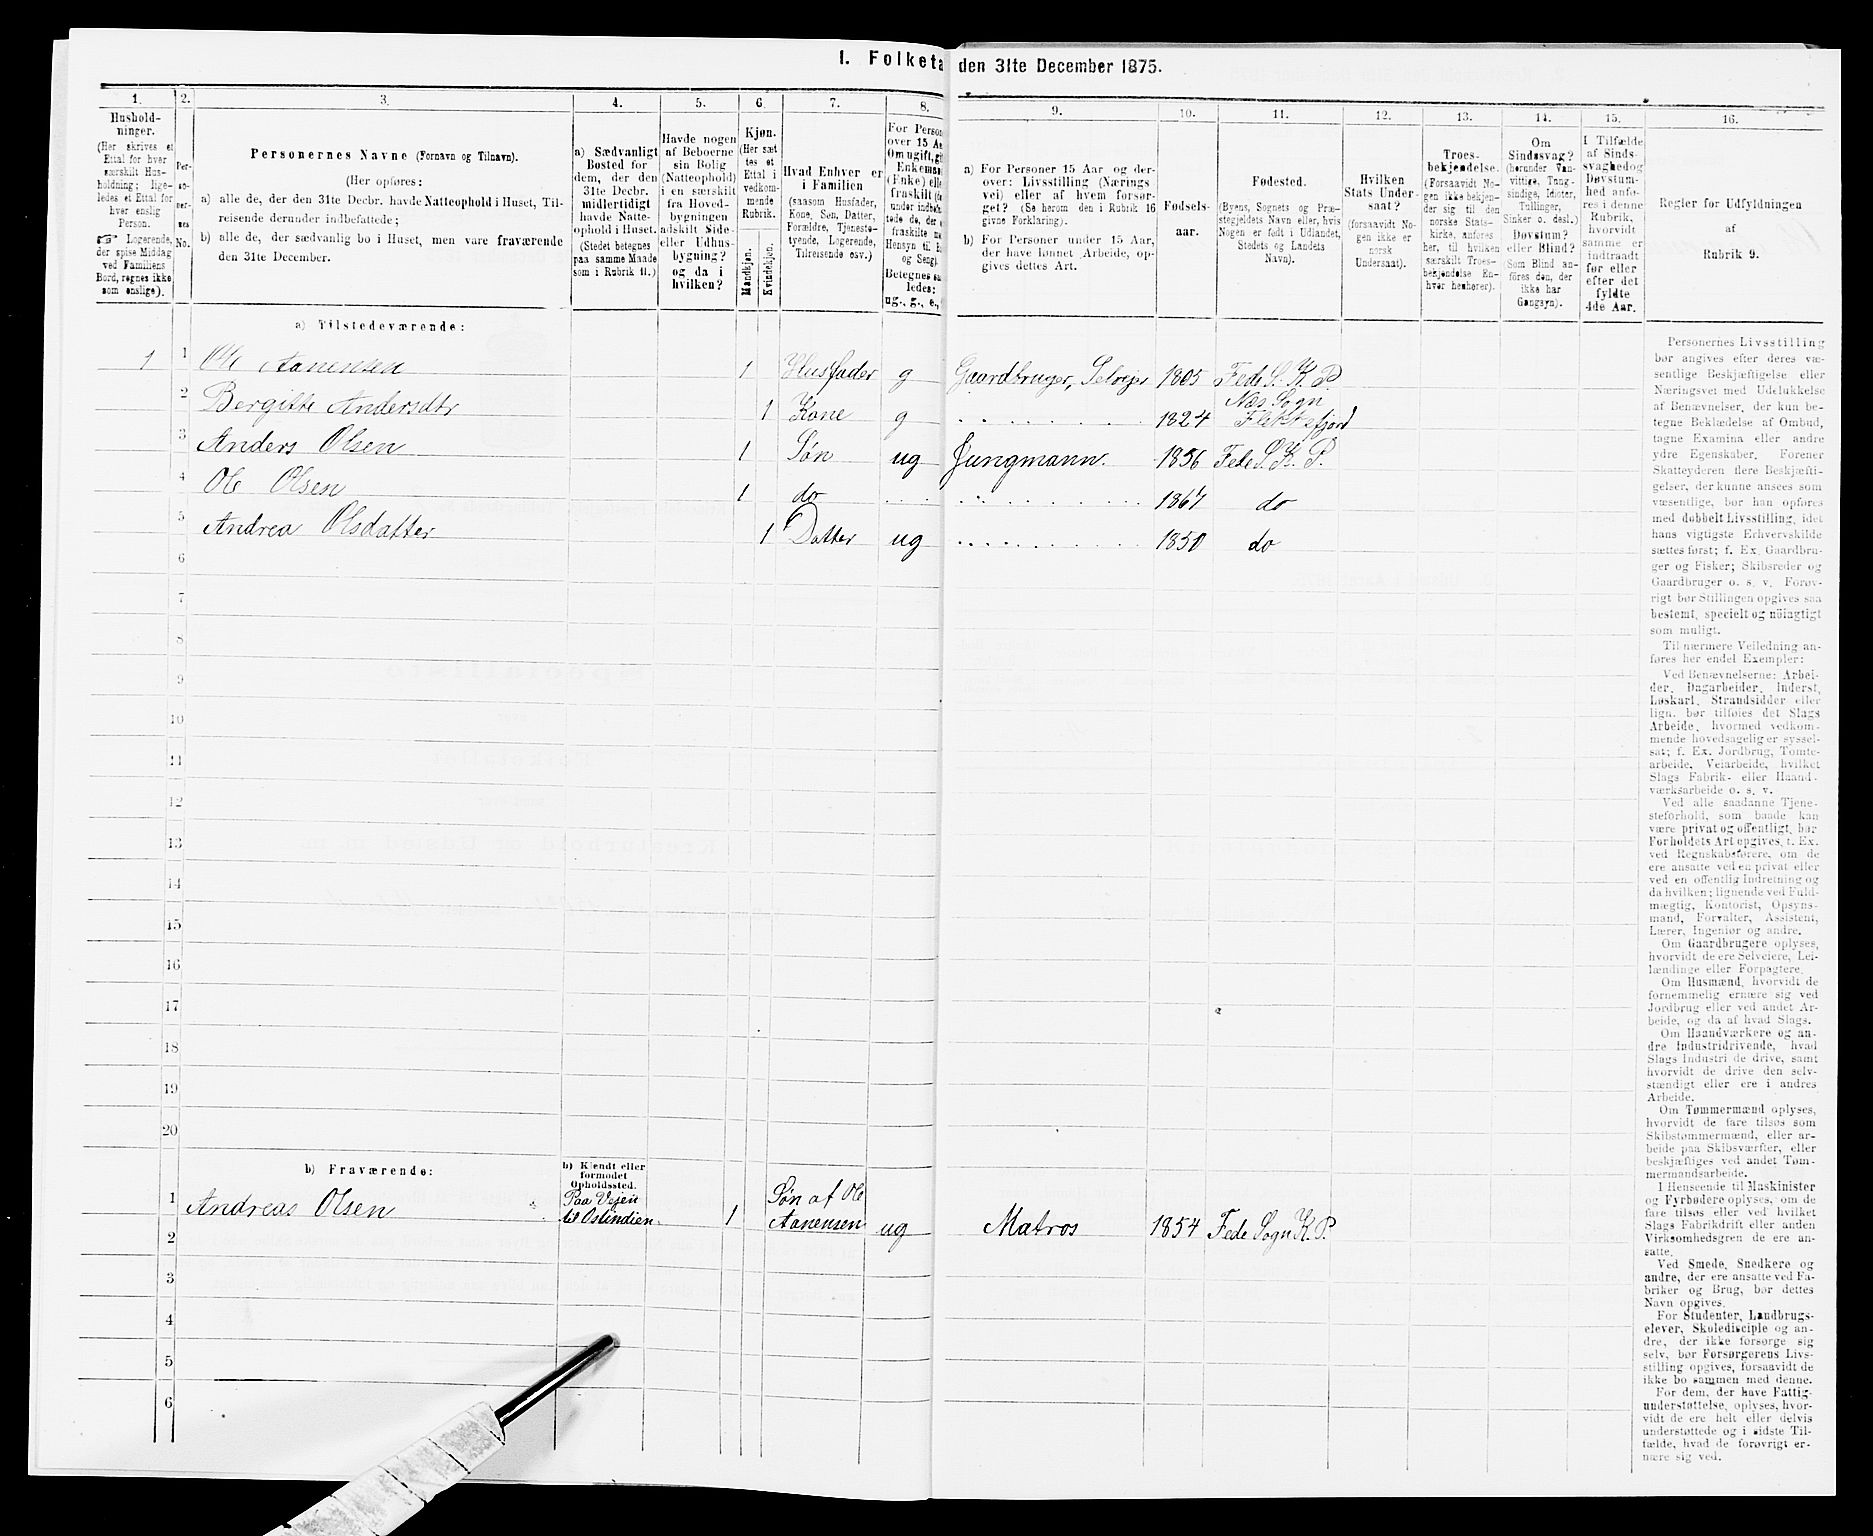 I. Folketa
den 31te December 1875.
1.
2.
3.
4.
5.
6.
7.
8.
9.
10.
11.
12.
13.
14.
15.
16.
Hushold-
ninger.
(Her skrives et
Ettal for hver
særskilt Hus-
holdning; lige-
ledes et Ettal for
hver enslig
Person.
☞ Logerende,
der spise Middag
ved Familiens
Bord, regnes ikke
som enslige).
Per-
so-
ner-
nes
No.
Personernes Navne (Fornavn og Tilnavn).
(Her opføres:
a) alle de, der den 31te Decbr. havde Natteophold i Huset, Til-
reisende derunder indbefattede;
b) alle de, der sædvanlig bo i Huset, men vare fraværende
den 31te December.
a) Sædvanligt
Bosted for
dem, der den
31te Decbr.
midlertidigt
havde Natte-
ophold i Huset.
(Stedet betegnes
paa samme Maade
som i Rubrik 11.)
Havde nogen
af Beboerne
sin Bolig
(Natteophold)
i en særskilt
fra Hoved-
bygningen
adskilt Side-
eller Udhus-
bygning?
og da i
hvilken?
Kjøn.
(Her sæt
tes et
Ettal i
vedkom-
mende
Rubrik.
Mandkjøn.
Kvindekjøn.
Hvad Enhver er
i Familien
(saasom Husfader,
Kone, Søn, Datter,
Forældre, Tjeneste-
tyende, Logerende,
Tilreisende osv.)
For Person
over 15 Aa
Om ugift, gi
Enkeman
(Enke) elle
fraskilt (
under indbe
tede de, der
fraskilte m
Hensyn til B
og Seng).
Betegnes sa
ledes:
ug., g., e.,
a) For Personer 15 Aar og der-
over: Livsstilling (Nærings
vei) eller af hvem forsør-
get? (Se herom den i Rubrik 16
givne Forklaring).
b) For Personer under 15 Aar,
der have lønnet Arbeide, op-
gives dettes Art.
Fødsels-
aar.
Fødested.
(Byens, Sognets og Præ-
stegjeldets Navn eller, hvis
Nogen er født i Udlandet,
Stedets og Landets
Navn).
Hvilken
Stats Under-
saat?
(forsaavidt No-
gen ikke er
norsk
Undersaat).
Troes-
bekjendelse.
(Forsaavidt No-
gen ikke bekjen-
der sig til den
norske Stats-
kirke, anføres
her, til hvilken
særskilt Troes-
bekjendelse En-
hver henhører).
Om
Sindssvag?
(herunder Van-
vittige, Tung-
sindige, Idioter,
Tullinger,
Sinker o. desl.)
Døvstum?
eller Blind?
(Som Blind an-
føres den, der
ikke har
Gangsyn).
I Tilfælde
af Sinds-
svaghed og
Døvstum-
hed anfø-
res i denne
Rubrik,
hvorvidt
samme er
indtraadt
før eller
efter det
fyldte
4de Aar.
Regler for Udfyldningen
af
Rubrik 9.
a) Tilstedeværende:
1 1 Ole Aanensen 1 Husfader g Gaardbruger, Selvejer 1805 Fede S. K. P.
Bergitte Andersdtr 1 Kone g 1824 Næs Sogn
Flekkefjord
3 Anders Olsen 1 Søn ug Jungmann. 1856 Fede S. K. P.
4 Ole Olsen 1 do 1867 do
5 Andrea Olsdatter 1 Datter ug 1850 do
6
7
8
9
10
11
12
13
14
15
16
17
18
19
20
b) Fraværende:
b) Kjendt eller
formodet
Opholdssted.
1 Andreas Olsen Paa Vejen
til Ostindien. 1 Søn af Ole
Aanensen ug Matros 1854 Fede Sogn K. P.
2
3
4
5
6
Personernes Livsstilling
bør angives efter deres væ-
sentlige Beskjæftigelse eller
Næringsvei med Udelukkelse
af Benævnelser, der kun be-
tegne Beklædelse af Ombud,
tagne Examina eller andre
ydre Egenskaber. Forener
Skatteyderen flere Beskjæfti-
gelser, der kunne ansees som
væsentlige, bør han opføres
med dobbelt Livsstilling, idet
hans vigtigste Erhvervskilde
sættes først; f. Ex. Gaardbru-
ger og Fisker; Skibsreder og
Gaardbruger o. s. v. Forøv-
rigt bør Stillingen opgives saa
bestemt, specielt og nöiagtigt
som muligt.
Til nærmere Veiledning an-
føres her endel Exempler:
Ved Benævnelserne: Arbei-
der, Dagarbeider, Inderst,
Løskarl, Strandsidder eller
lign. bør tilføies det Slags
Arbeide, hvormed vedkom-
mende hovedsagelig er syssel-
sat; f. Ex. Jordbrug, Tomte-
arbeide, Veiarbeide, hvilket
Slags Fabrik- eller Haand-
værksarbeide o. s. v.
Ved alle saadanne Tjene-
steforhold, som baade kan
være privat og offentligt, bør
Forholdets Art opgives, f. Ex.
ved Regnskabsførere, om de
ere ansatte ved en privat eller
ved en offentlig Indretning og
da hvilken; lignende ved Fuld-
mægtig, Kontorist, Opsyns-
mand, Forvalter, Assistent,
Lærer, Ingeniør og andre.
Om Gaardbrugere oplyses,
hvorvidt de ere Selveiere, Lei-
lændinge eller Forpagtere.
Om Husmænd, hvorvidt de
fornemmelig ernære sig ved
Jordbrug eller ved andet Ar-
beide, og da af hvad Slags.
Om Haandværkere og an-
dre Industridrivende, hvad
Slags Industri de drive, samt
hvorvidt de drive den selv-
stændigt eller ere i andres
Arbeide.
Om Tømmermænd oplyses,
hvorvidt de fare tilsøs som
Skibstømmermænd, eller ar-
beide paa Skibsværfter, eller
beskjæftiges ved andet Tøm-
mermandsarbeide.
I Henseende til Maskinister
og Fyrbødere oplyses, om de
fare tilsøs eller ved hvilket
Slags Fabrikdrift eller anden
Virksomhedsgren de ere an-
satte.
Ved Smede, Snedkere og
andre, der ere ansatte ved Fa-
briker og Brug, bør dettes
Navn opgives.
For Studenter, Landbrugs-
elever, Skoledisciple og an-
dre, der ikke forsørge sig
selv, bør Forsørgerens Livs-
stilling opgives, forsaavidt de
ikke bo sammen med denne.
For dem, der have Fattig-
understøttelse, oplyses, hvor-
vidt de ere helt eller delvis
understøttede og i sidste Til-
fælde, hvad de forøvrigt er-
nære sig ved.